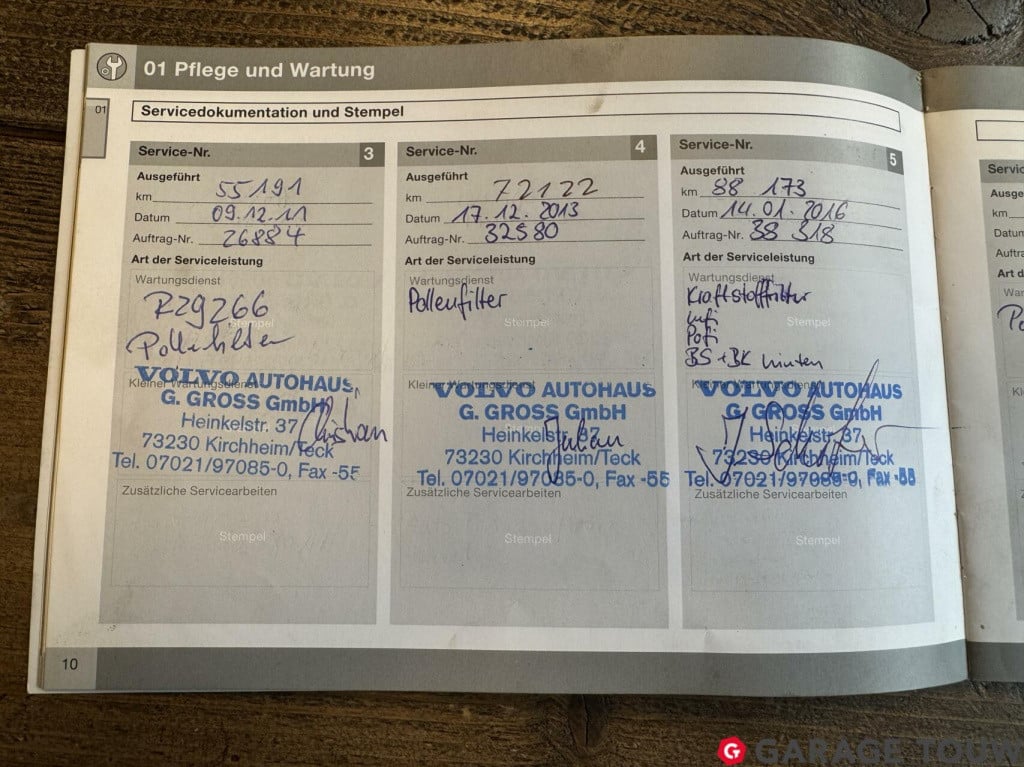 01 Pflege und Wartung
01
Servicedokumentation und Stempel
Service-Nr. 3
Ausgeführt
km 55191
Datum 09.12.11
Auftrag-Nr. 26884
Art der Serviceleistung
Wartungsdienst
RZg266
Stempel
Pollenfilter
Kleiner Wartungsdienst
VOLVO AUTOHAUS
G. GROSS GmbH
Heinkelstr. 37
73230 Kirchheim/Teck
Tel. 07021/97085-0, Fax -55
Zusätzliche Servicearbeiten
Stempel
Service-Nr. 4
Ausgeführt
km 72122
Datum 17.12.2013
Auftrag-Nr. 32580
Art der Serviceleistung
Wartungsdienst
Pollenfilter
Stempel
Kleiner Wartungsdienst
VOLVO AUTOHAUS
G. GROSS GmbH
Heinkelstr. 37
Julian
73230 Kirchheim/Teck
Tel. 07021/97085-0, Fax -55
Zusätzliche Servicearbeiten
Stempel
Service-Nr. 5
Ausgeführt
km 88 173
Datum 14.01.2016
Auftrag-Nr. 38 318
Art der Serviceleistung
Wartungsdienst
Kraftstofffilter
Stempel
Lufi
Pofi
BS + BK hinten
Kleiner Wartungsdienst
VOLVO AUTOHAUS
G. GROSS GmbH
Heinkelstr. 37
73230 Kirchheim/Teck
Tel. 07021/97085-0, Fax -55
Zusätzliche Servicearbeiten
Stempel
10
km
Datum
GARAGE TOUW